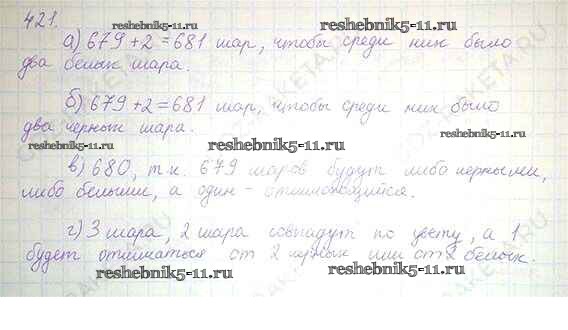 421.
reshebnik5-11.ru
а) 679 + 2 = 681 шар, чтобы среди них было
два белых шара.
reshebnik5-11.ru
б) 679 + 2 = 681 шар, чтобы среди них было
два черных шара.
reshebnik5-11.ru
reshebnik5-11.ru
в) 680, т.к. 679 шаров будут либо черными,
либо белыми, а один - отличающийся.
reshebnik5-11.ru
г) 3 шара, 2 шара совпадут по цвету, а 1
будет отличаться от 2 черных или от 2 белых.
reshebnik5-11.ru
reshebnik5-11.ru